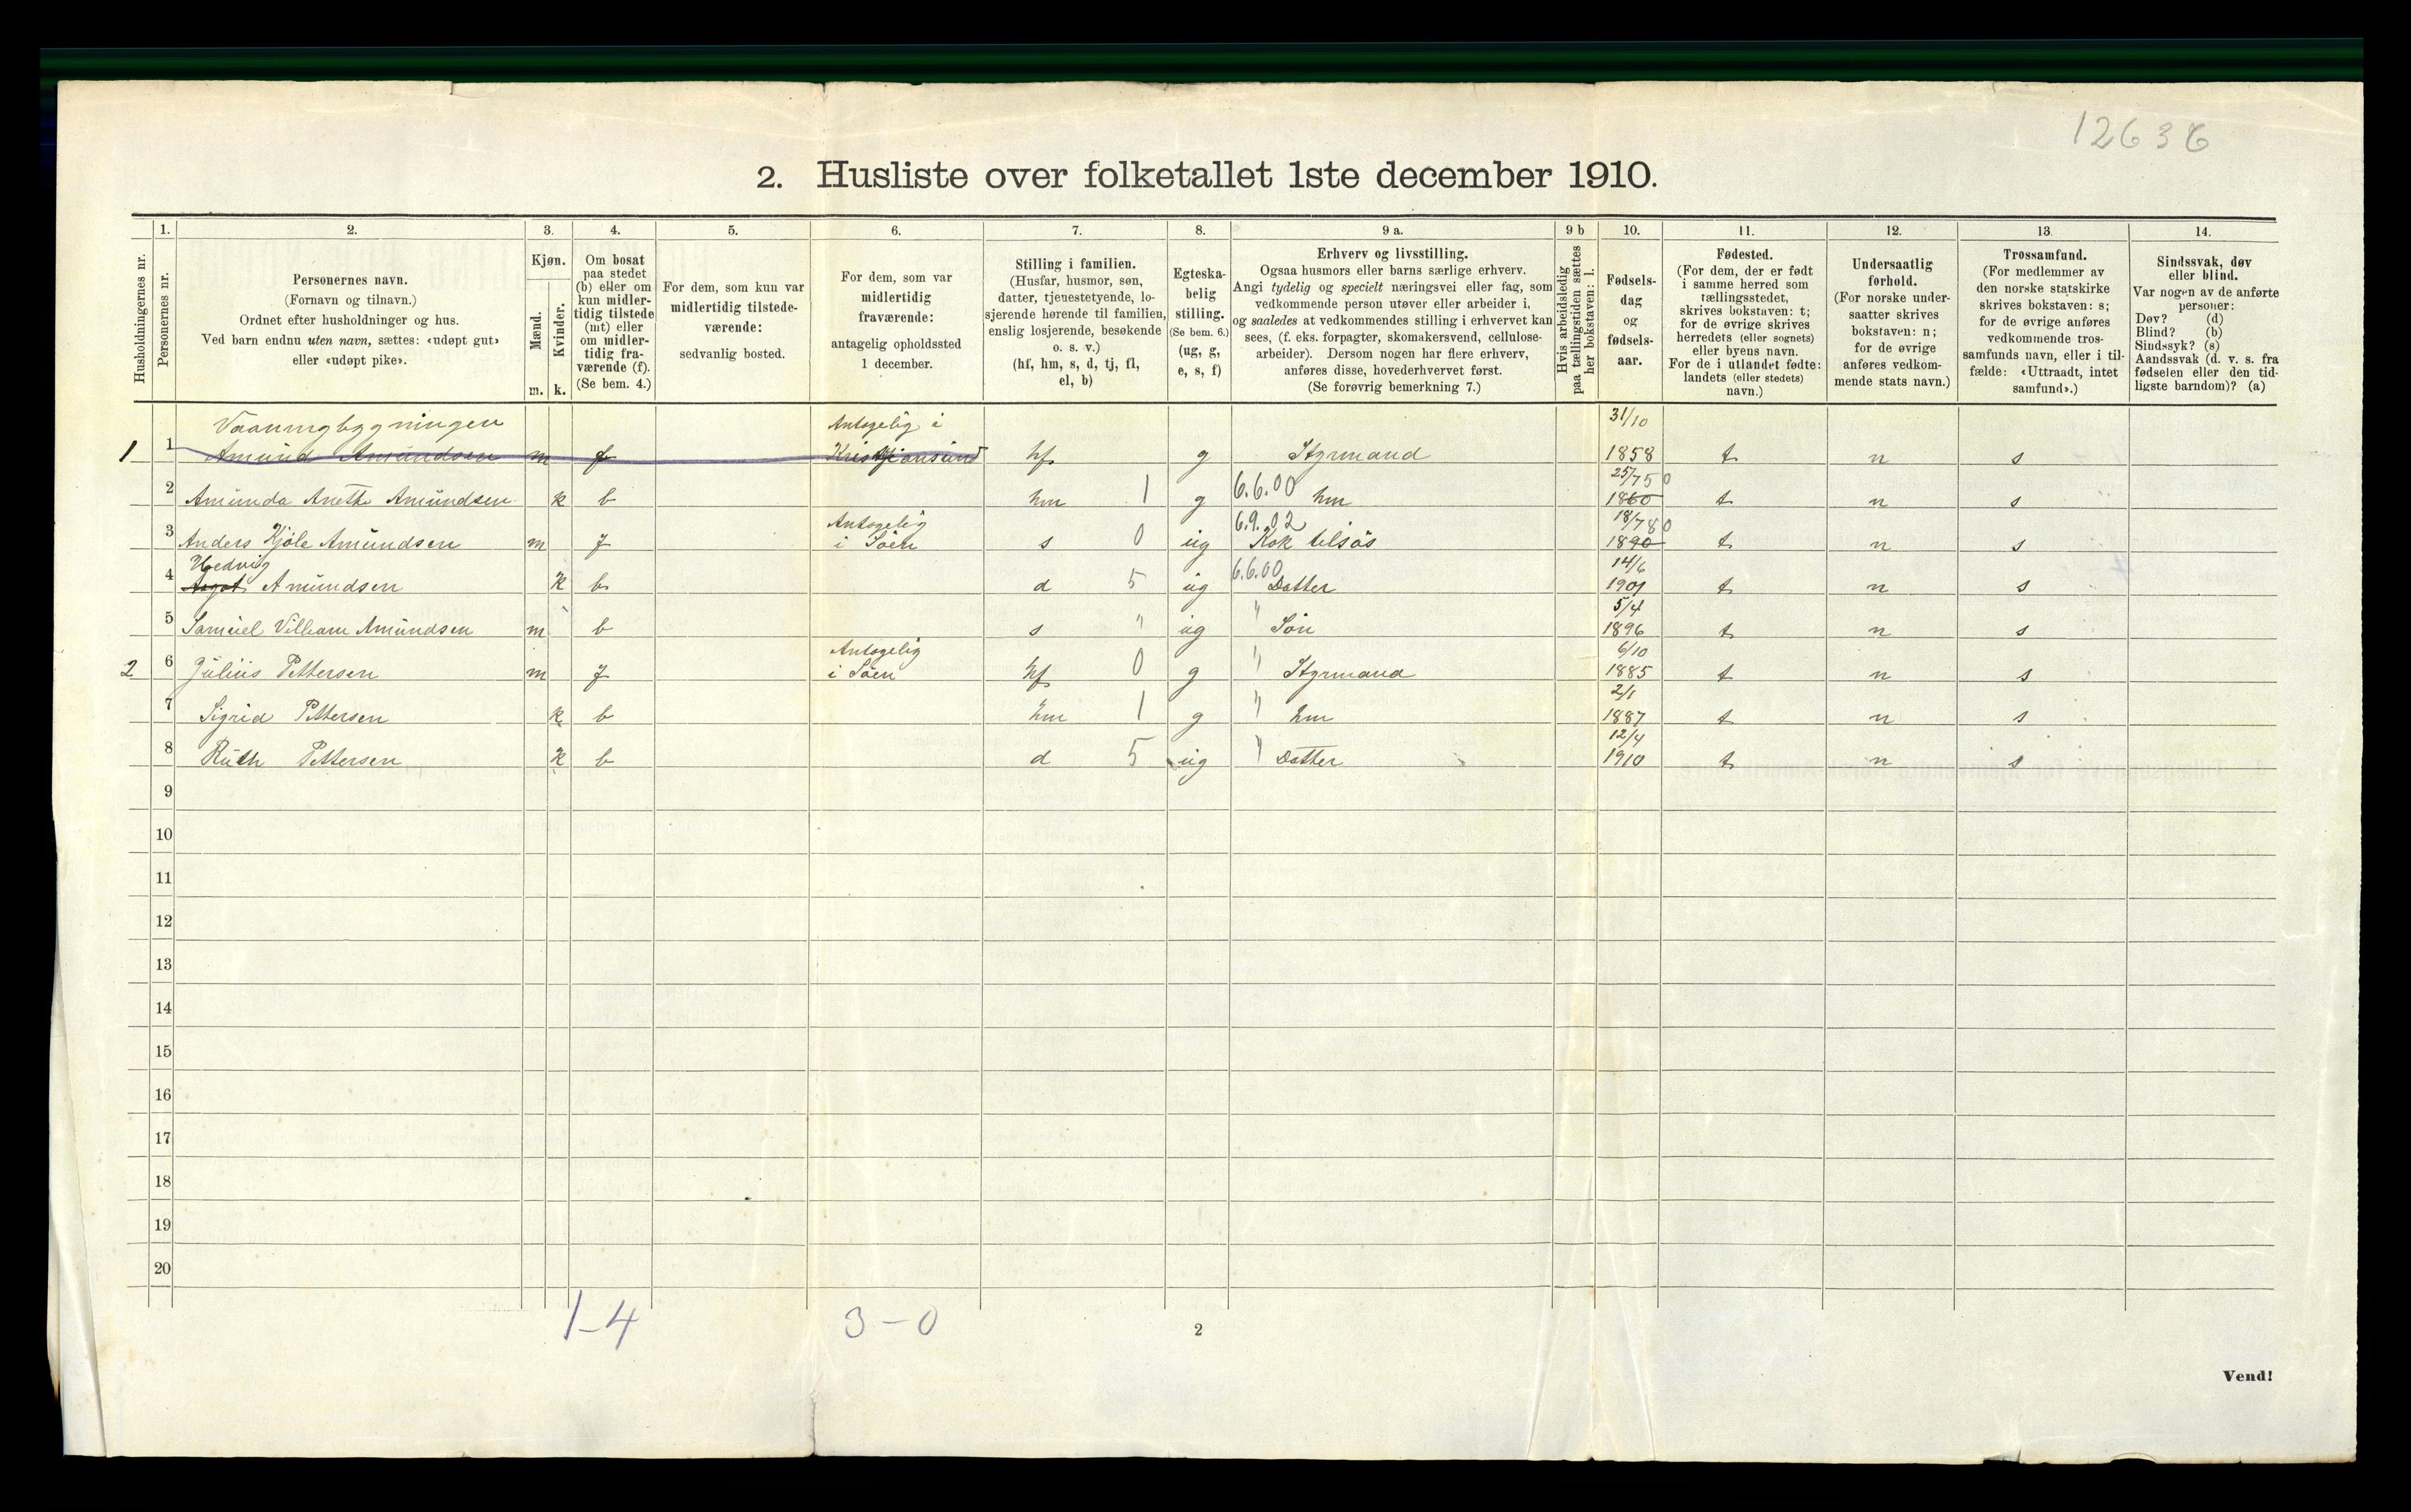 12636
2. Husliste over folketallet 1ste december 1910.
Husholdningernes nr.
1.
Personernes nr.
2.
Personernes navn.
(Fornavn og tilnavn.)
Ordnet efter husholdninger og hus.
Ved barn endnu uten navn, sættes: «udøpt gut»
eller «udøpt pike».
3.
Kjøn.
Mænd.
Kvinder.
m. k.
4.
Om bosat
paa stedet
(b) eller om
kun midler-
tidig tilstede
(mt) eller
om midler-
tidig fra-
værende (f).
(Se bem. 4.)
5.
For dem, som kun var
midlertidig tilstede-
værende:
sedvanlig bosted.
6.
For dem, som var
midlertidig
fraværende:
antagelig opholdssted
1 december.
7.
Stilling i familien.
(Husfar, husmor, søn,
datter, tjenestetyende, lo-
sjerende hørende til familien,
enslig losjerende, besøkende
o. s. v.)
(hf, hm, s, d, tj, fl,
el, b)
8.
Egteska-
belig
stilling.
(Se bem. 6.)
(ug, g,
e, s, f)
9 a.
Erhverv og livsstilling.
Ogsaa husmors eller barns særlige erhverv.
Angi tydelig og specielt næringsvei eller fag, som
vedkommende person utøver eller arbeider i,
og saaledes at vedkommendes stilling i erhvervet kan
sees, (f. eks. forpagter, skomakersvend, cellulose-
arbeider). Dersom nogen har flere erhverv,
anføres disse, hovederhvervet først.
(Se forøvrig bemerkning 7.)
9 b
Hvis arbeidsledig
paa tællingstiden sættes
her bokstaven: l.
10.
Fødsels-
dag
og
fødsels-
aar.
11.
Fødested.
(For dem, der er født
i samme herred som
tællingsstedet,
skrives bokstaven: t;
for de øvrige skrives
herredets (eller sognets)
eller byens navn.
For de i utlandet fødte:
landets (eller stedets)
navn.)
12.
Undersaatlig
forhold.
(For norske under-
saatter skrives
bokstaven: n;
for de øvrige
anføres vedkom-
mende stats navn.)
13.
Trossamfund.
(For medlemmer av
den norske statskirke
skrives bokstaven: s;
for de øvrige anføres
vedkommende tros-
samfunds navn, eller i til-
fælde: «Uttraadt, intet
samfund».)
14.
Sindssvak, døv
eller blind.
Var nogen av de anførte
personer:
Døv? (d)
Blind? (b)
Sindssyk? (s)
Aandssvak (d. v. s. fra
fødselen eller den tid-
ligste barndom)? (a)
Vaaningbygningen Antagelig i 31/10
1 1 Amund Amundsen m f Kristjansund hf g Styrmand 1858 t n s
25/7 50
2 Amunda Anette Amundsen k b hm 1 g 6.6.00 hm 1860 t n s
Antagelig 6.9.02 18/7 80
3 Anders Kjøle Amundsen m f i Søen s 0 ug Kok tilsøs 1890 t n s
Hedvig 6.6.00 14/6
4 Agot Amundsen k b d 5 ug Datter 1901 t n s
5/4
5 Samuel Villiam Amundsen m b s " ug " Søn 1896 t n s
Antagelig 6/10
2 6 Julius Pettersen m f i Søen hf 0 g " Styrmand 1885 t n s
2/1
7 Sigrid Pettersen k b hm 1 g " hm 1887 t n s
12/4
8 Ruth Pettersen k b d 5 ug " Datter 1910 t n s
9
10
11
12
13
14
15
16
17
18
19
20
1-4 3-0
2
Vend!